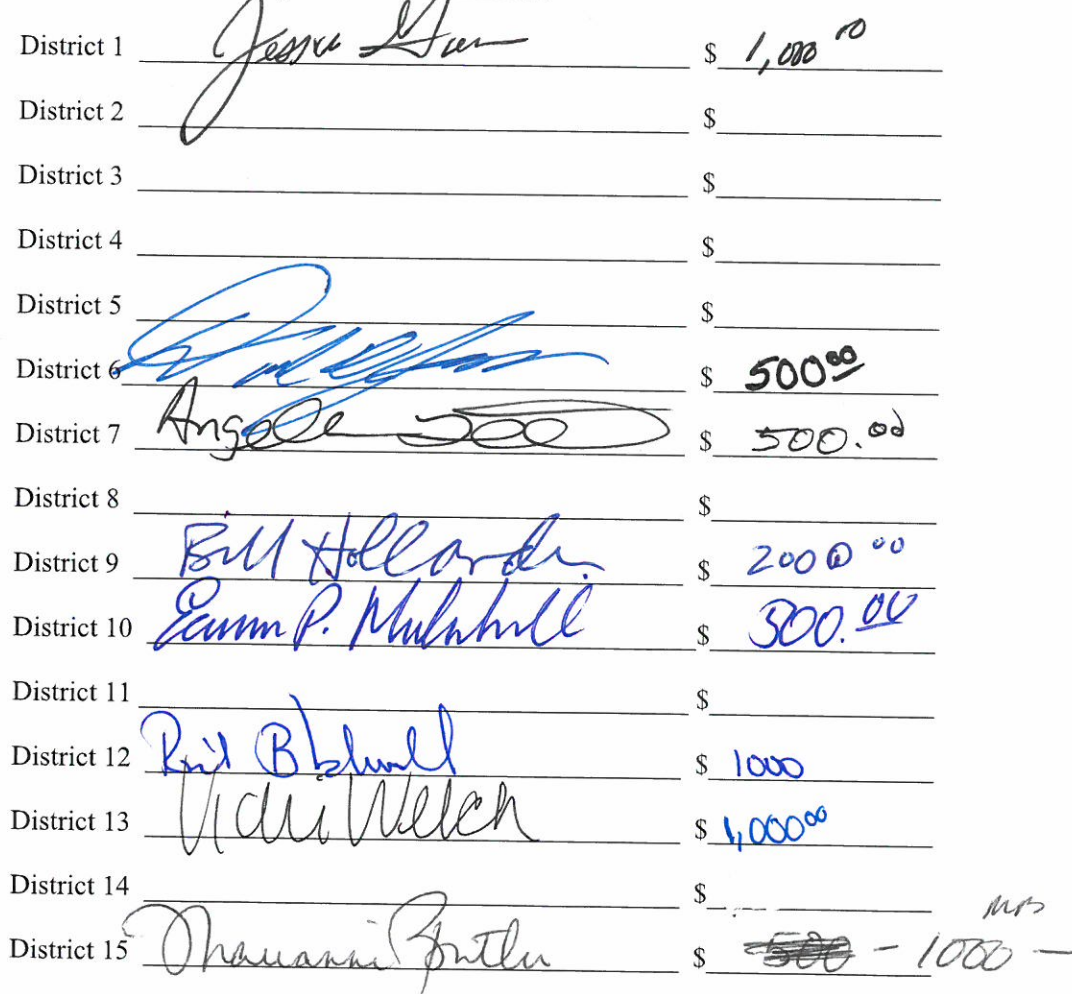 District 1 $ 1,000 00
District 2 $
District 3 $
District 4 $
District 5 $
District 6 $ 500 00
District 7 Angela $ 500.00
District 8 $
District 9 Bill Hollander $ 2000 00
District 10 P. $ 300.00
District 11 $
District 12 $ 1000
District 13 Vicki Welch $ 1,000 00
District 14 $
District 15 Marianne Butler $ 500 - 1000 - MB